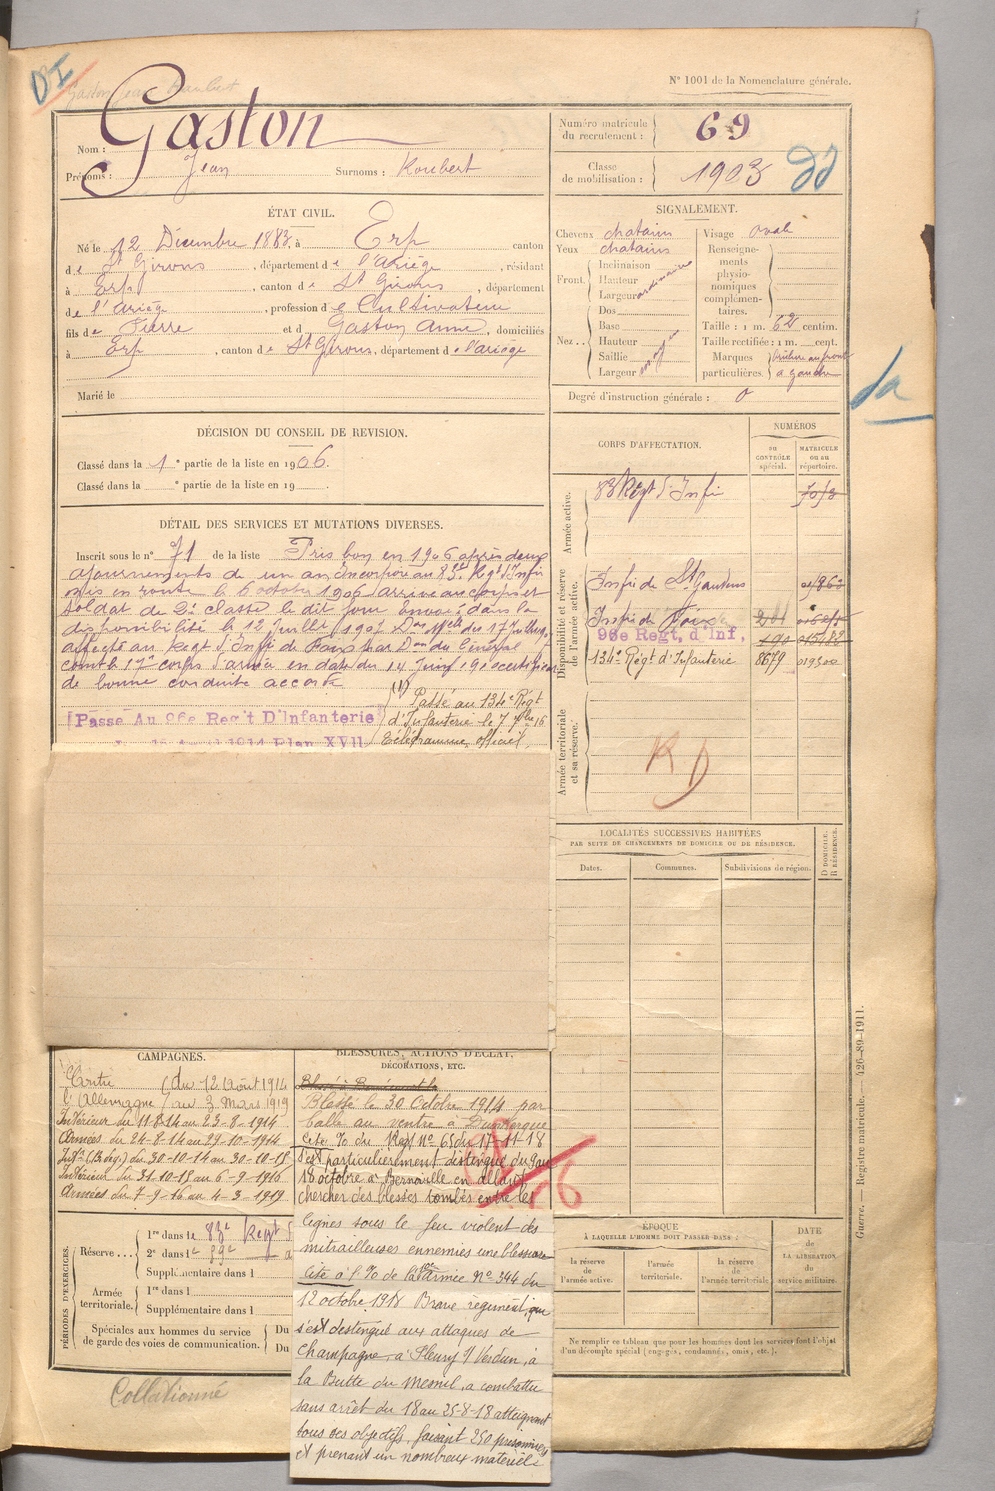 DI
N° 1001 de la Nomenclature générale.
Nom : Gaston
Prénoms : Jean Surnoms : Roubert
Numéro matricule du recrutement : 69
Classe de mobilisation : 1903
ÉTAT CIVIL.
Né le 12 Décembre 1883, à Erp canton
de St Girons, département de l'Ariège, résidant
à Erp, canton de St Girons, département
de l'Ariège, profession de Cultivateur
fils de Pierre et d Gaston Anne, domiciliés
à Erp, canton de St Girons, département de l'ariège
Marié le
SIGNALEMENT.
Cheveux chatains Visage oval
Yeux chatains Renseigne-
ments
physio-
nomiques
complémen-
taires.
Front. Inclinaison
Hauteur ordinaire
Largeur
Nez.. Dos
Base
Hauteur moyen
Saillie
Largeur
Taille : 1 m. 62 centim.
Taille rectifiée : 1 m. cent.
Marques particulières. brulure au front
a gauche
Degré d'instruction générale : 0
DÉCISION DU CONSEIL DE REVISION.
Classé dans la 1e partie de la liste en 1906.
Classé dans la e partie de la liste en 19 .
CORPS D'AFFECTATION.
NUMÉROS
au CONTRÔLE spécial.
MATRICULE ou au répertoire.
Armée active.
83 Régt d'Infie
Disponibilité et réserve de l'armée active.
Infie de St Gaudens
Infie de Foix
96e Regt, d'Inf,
134e Régt d'Infanterie 8679 019300
Armée territoriale et sa réserve.
KD
DÉTAIL DES SERVICES ET MUTATIONS DIVERSES.
Inscrit sous le n° 71 de la liste Pris bon en 1906 après deux
ajournements de un an Incorporé au 83e Régt d'Infie
mis en route le 6 octobre 1906 arrivé au corps et
soldat de 2e classe le dit jour Envoyé dans la
disponibilité le 12 Juillet 1907 Don Melle des 17 Juillet
affecté au Régt d'Infie de Foix par Don du Général
comt le 17e corps d'armée en date du 14 Juin 19 certificat
de bonne conduite accordé
[Passé Au 96e Reg't D'Infanterie]
1914 Plan XVII.
(1) Passé au 134e Régt
d'Infanterie le 7 7bre 16
Télégramme officiel.
LOCALITÉS SUCCESSIVES HABITÉES
PAR SUITE DE CHANGEMENTS DE DOMICILE OU DE RÉSIDENCE.
Dates. Communes. Subdivisions de région.
D DOMICILE. R RÉSIDENCE.
CAMPAGNES.
Contre (du 12 Août 1914
l'Allemagne (au 3 Mars 1919
Intérieur du 11-8-14 au 23-8-1914
Armées du 24-8-14 au 29-10-1914
Intr (Bl.ég.) du 30-10-14 au 30-10-15
Intérieur du 31-10-15 au 6-9-1916
Armées du 7-9-16 au 4-3-1919
BLESSURES, ACTIONS D'ÉCLAT,
DÉCORATIONS, ETC.
Blessé le 30 Octobre 1914 par
balle au ventre à Dunkerque
Cité % du Regt N° 65 du 17-11-18
s'est particulièrement distingué du 9 au
18 octobre à Bernoville en allant
chercher des blessés tombés entre les
lignes sous le feu violent des
mitrailleuses ennemies une blessure
Cité à l'% de la Armée N° 344 du
12 octobre 1918 Brave régiment, que
s'est distingué aux attaques de
Champagne, à Fleury s/ Verdun, à
la Butte du Mesnil, a combattu
sans arrêt du 18 au 25-8-18 atteignant
tous ses objectifs, faisant 250 prisonniers
et prenant un nombreux matériel
PÉRIODES D'EXERCICES.
Réserve... 1re dans le 83e Regt
2e dans le
Supplémentaire dans l
Armée territoriale. 1re dans l
Supplémentaire dans l
Spéciales aux hommes du service Du
de garde des voies de communication. Du
ÉPOQUE
À LAQUELLE L'HOMME DOIT PASSER DANS :
la réserve de l'armée active.
l'armée territoriale.
la réserve de l'armée territoriale.
DATE
de
LA LIBÉRATION
du
service militaire.
Ne remplir ce tableau que pour les hommes dont les services font l'objet
d'un décompte spécial (engagés, condamnés, omis, etc.).
Guerre. — Registre matricule. 426-89-1911.
Collationné